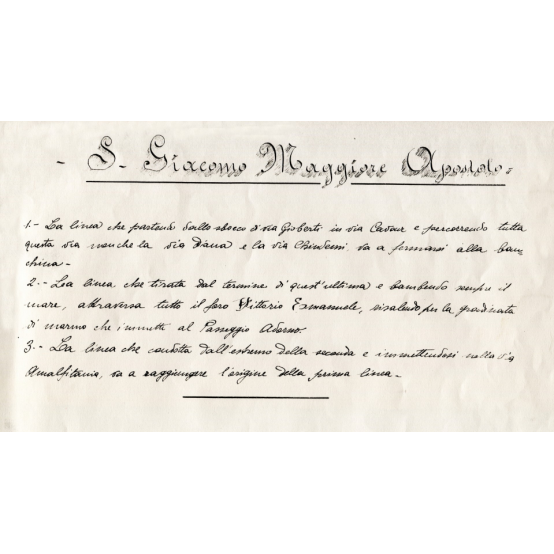 - S. Giacomo Maggiore Apostolo -
1.- La linea che partendo dallo sbocco di via Gioberti in via Cavour e percorrendo tutta
questa via nonchè la via Diana e la via Chindemi va a fermarsi alla ban-
china -
2.- La linea che tirata dal termine di quest'ultima e lambendo sempre il
mare, attraversa tutto il foro Vittorio Emanuele, risalendo per la gradinata
di marmo che immette al Passeggio Adorno.
3.- La linea che condotta dall'estremo della seconda e immettendosi nella via
Amalfitania, va a raggiungere l'origine della prima linea -